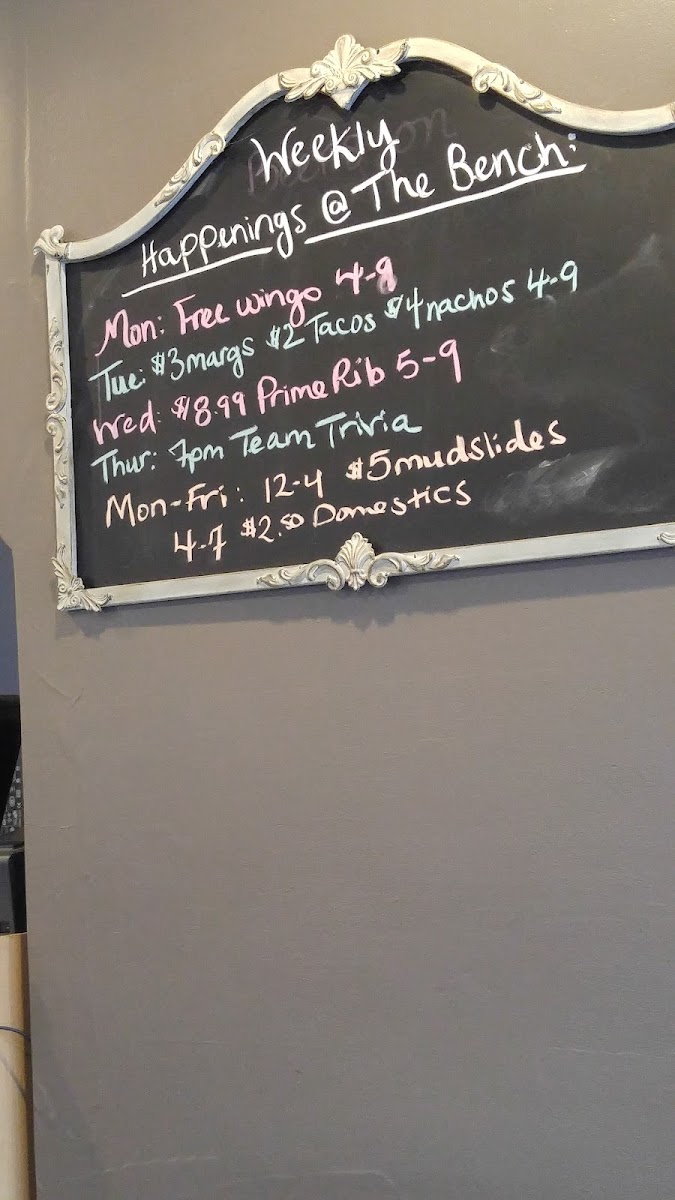 Weekly
Happenings @ The Bench:
Mon: Free wingo 4-8
Tue: $3margs $2 Tacos $4nachos 4-9
Wed: $8.99 Prime Rib 5-9
Thur: 7pm Team Trivia
Mon-Fri: 12-4 $5mudslides
4-7 $2.50 Domestics